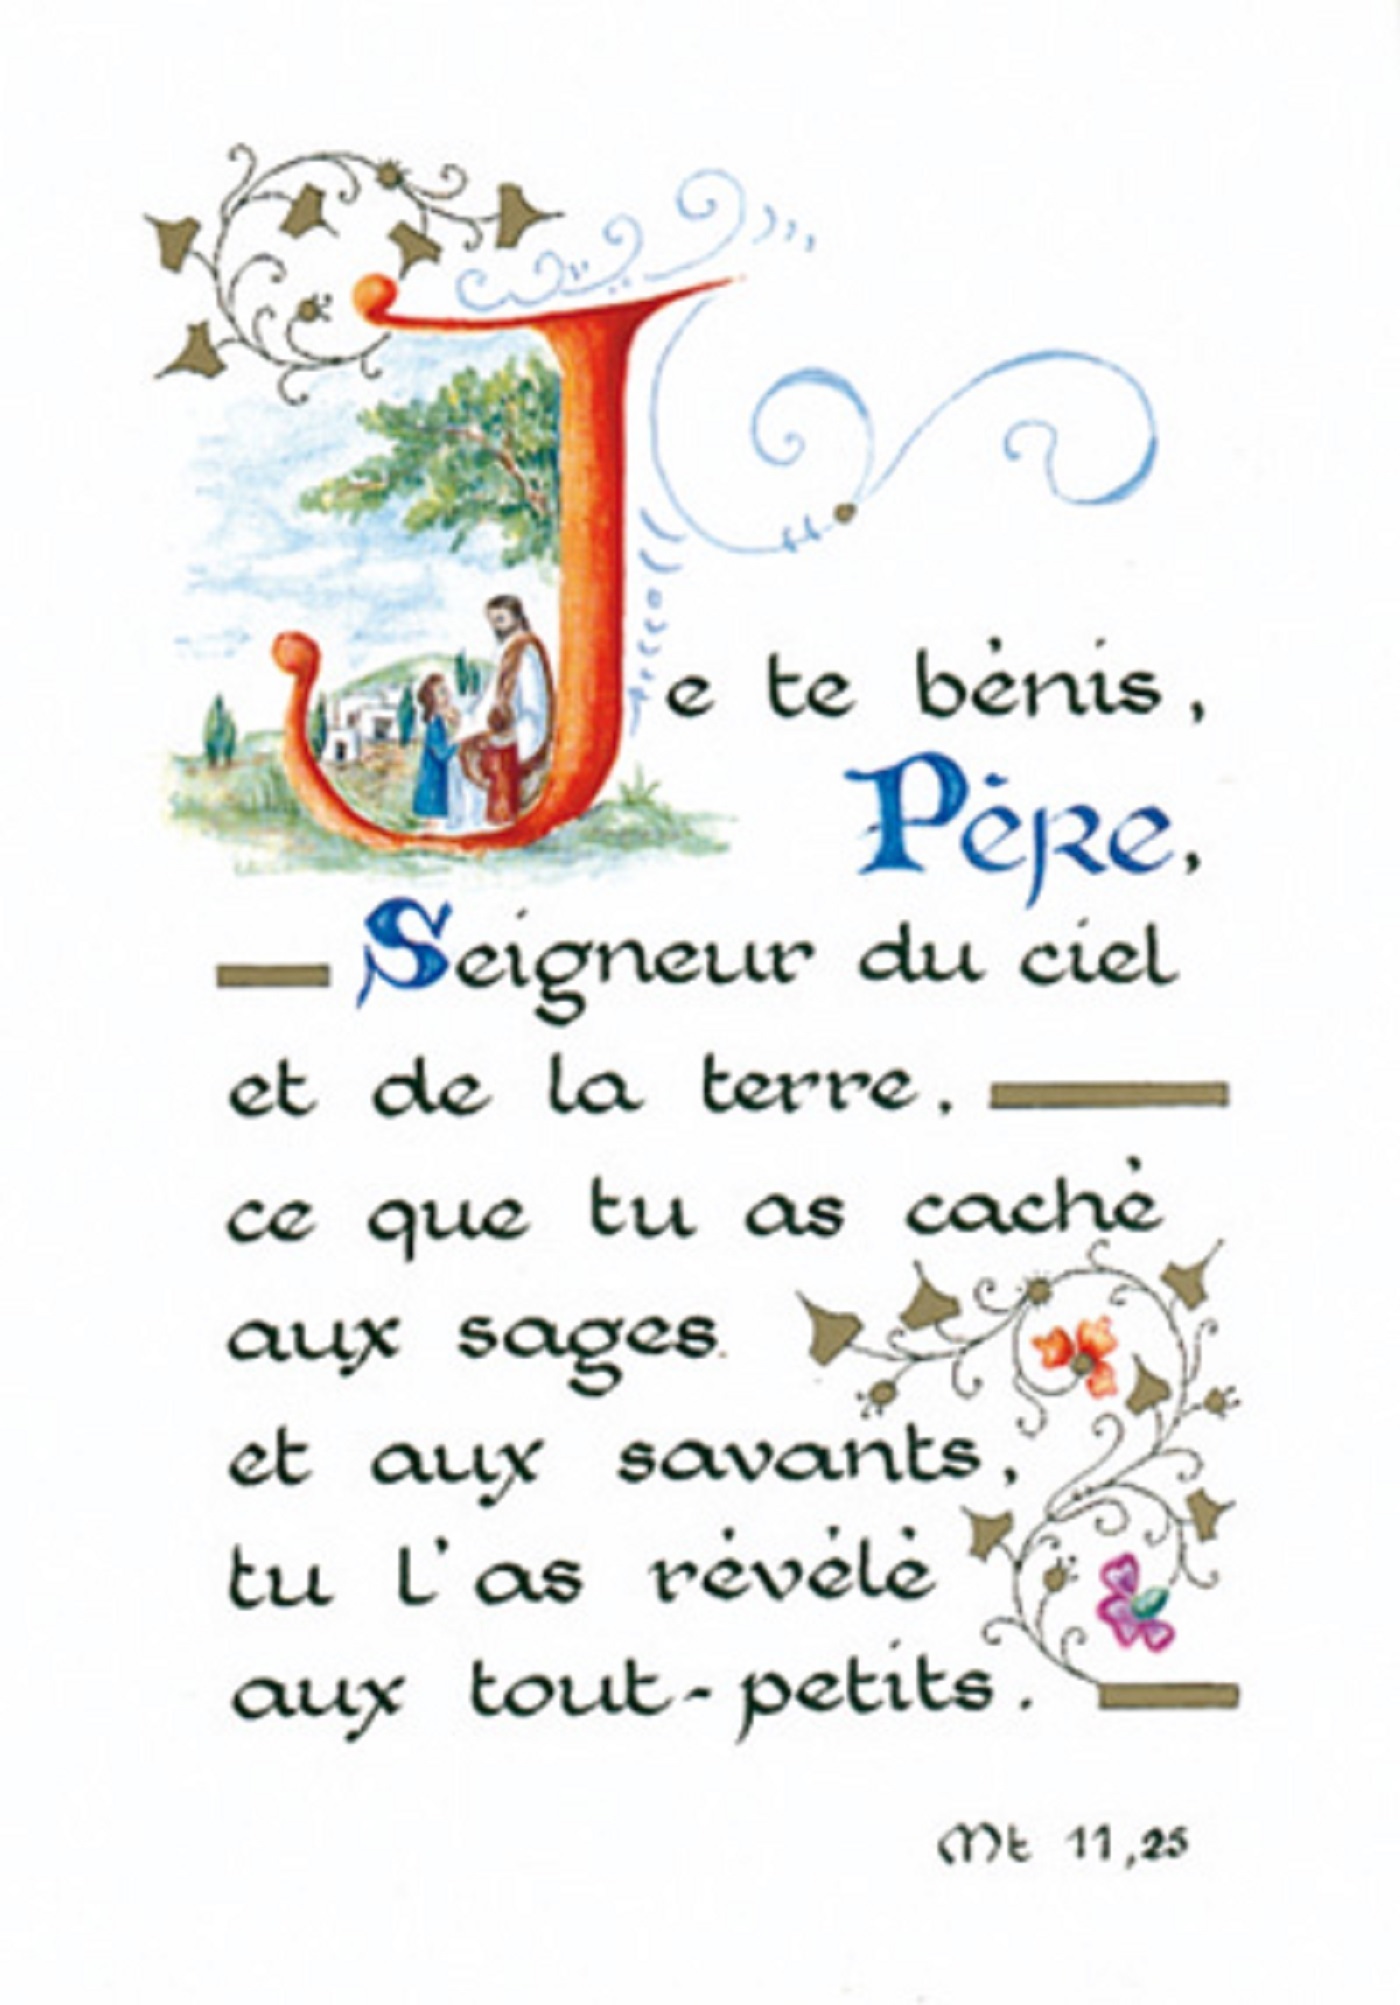 Je te bénis,
Père,
Seigneur du ciel
et de la terre,
ce que tu as caché
aux sages
et aux savants,
tu l'as révélé
aux tout-petits.
Mt 11,25